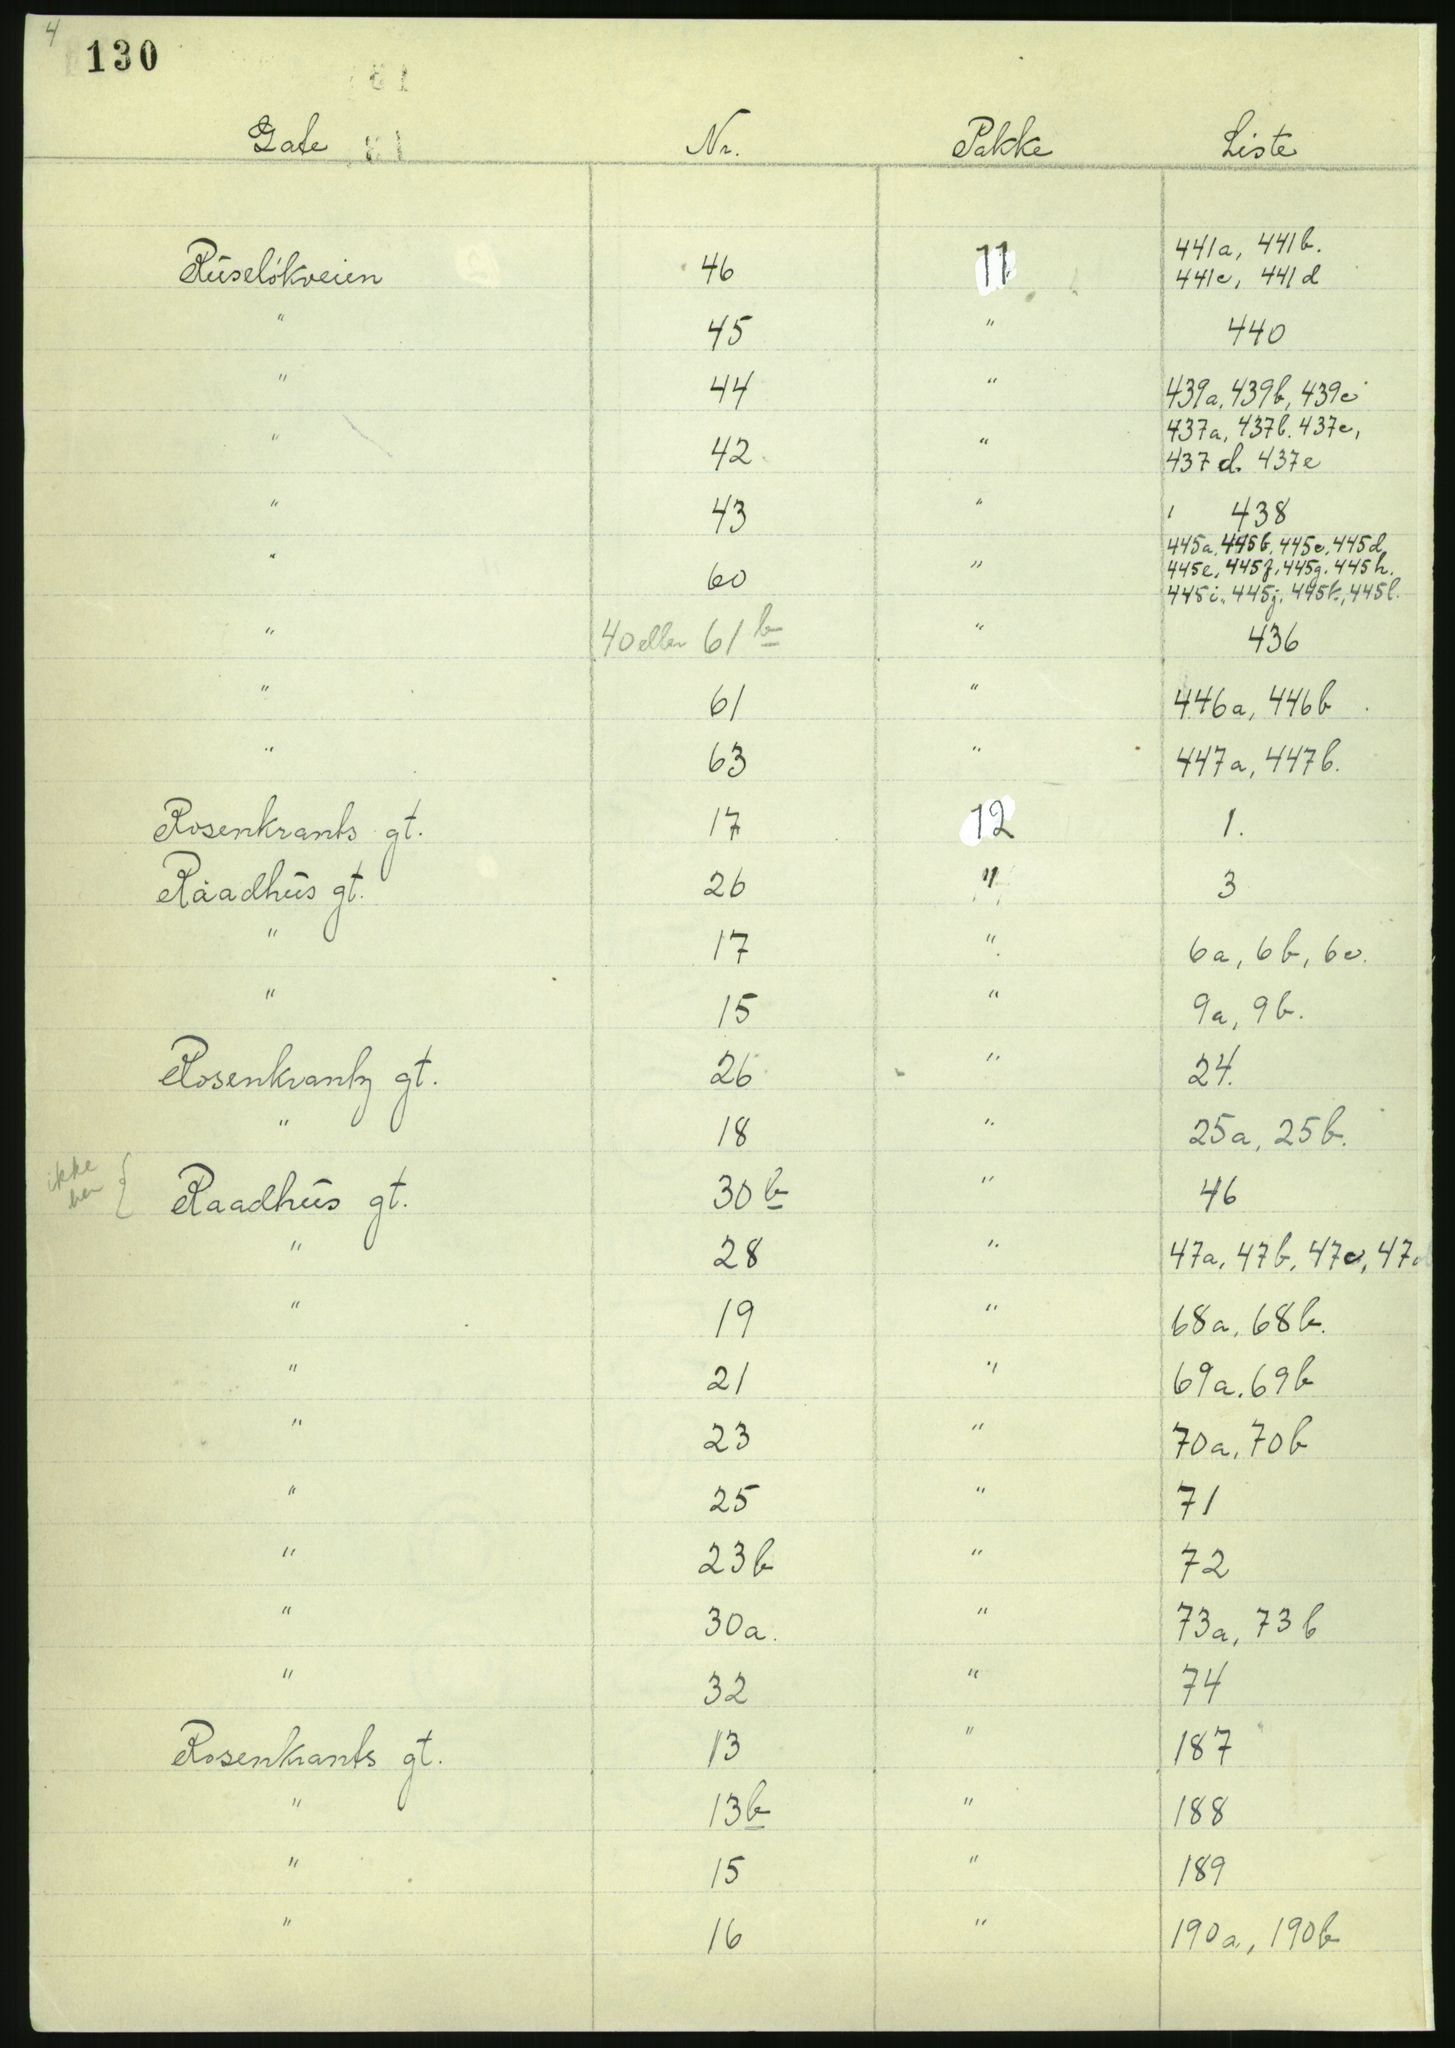 4
130
Gate Nr. Pakke Liste
441a, 441b.
Ruseløkveien 46 11 441c, 441d
" 45 " 440
" 44 " 439a, 439b, 439c
437a, 437b. 437c,
" 42 " 437d. 437e
" 43 " 438
445a, 445b, 445c, 445d
" 60 " 445e, 445f, 445g. 445h.
445i., 445j, 445k, 445l.
" 40 eller 61 b " 436
" 61 " 446a, 446b
" 63 " 447a, 447b.
Rosenkrants gt. 17 12 1.
Råadhus gt. 26 " 3
" 17 " 6a, 6b, 6c.
" 15 " 9a, 9b.
Rosenkrantz gt. 26 " 24.
" 18 " 25a, 25b.
ikke
her { Raadhus gt. 30 b " 46
" 28 " 47a, 47b, 47c, 47d
" 19 " 68a, 68b.
" 21 " 69a. 69b
" 23 " 70a, 70b
" 25 " 71
" 23b " 72
" 30a. " 73a, 73b
" 32 " 74
Rosenkrants gt. 13 " 187
" 13b " 188
" 15 " 189
" 16 " 190a, 190b